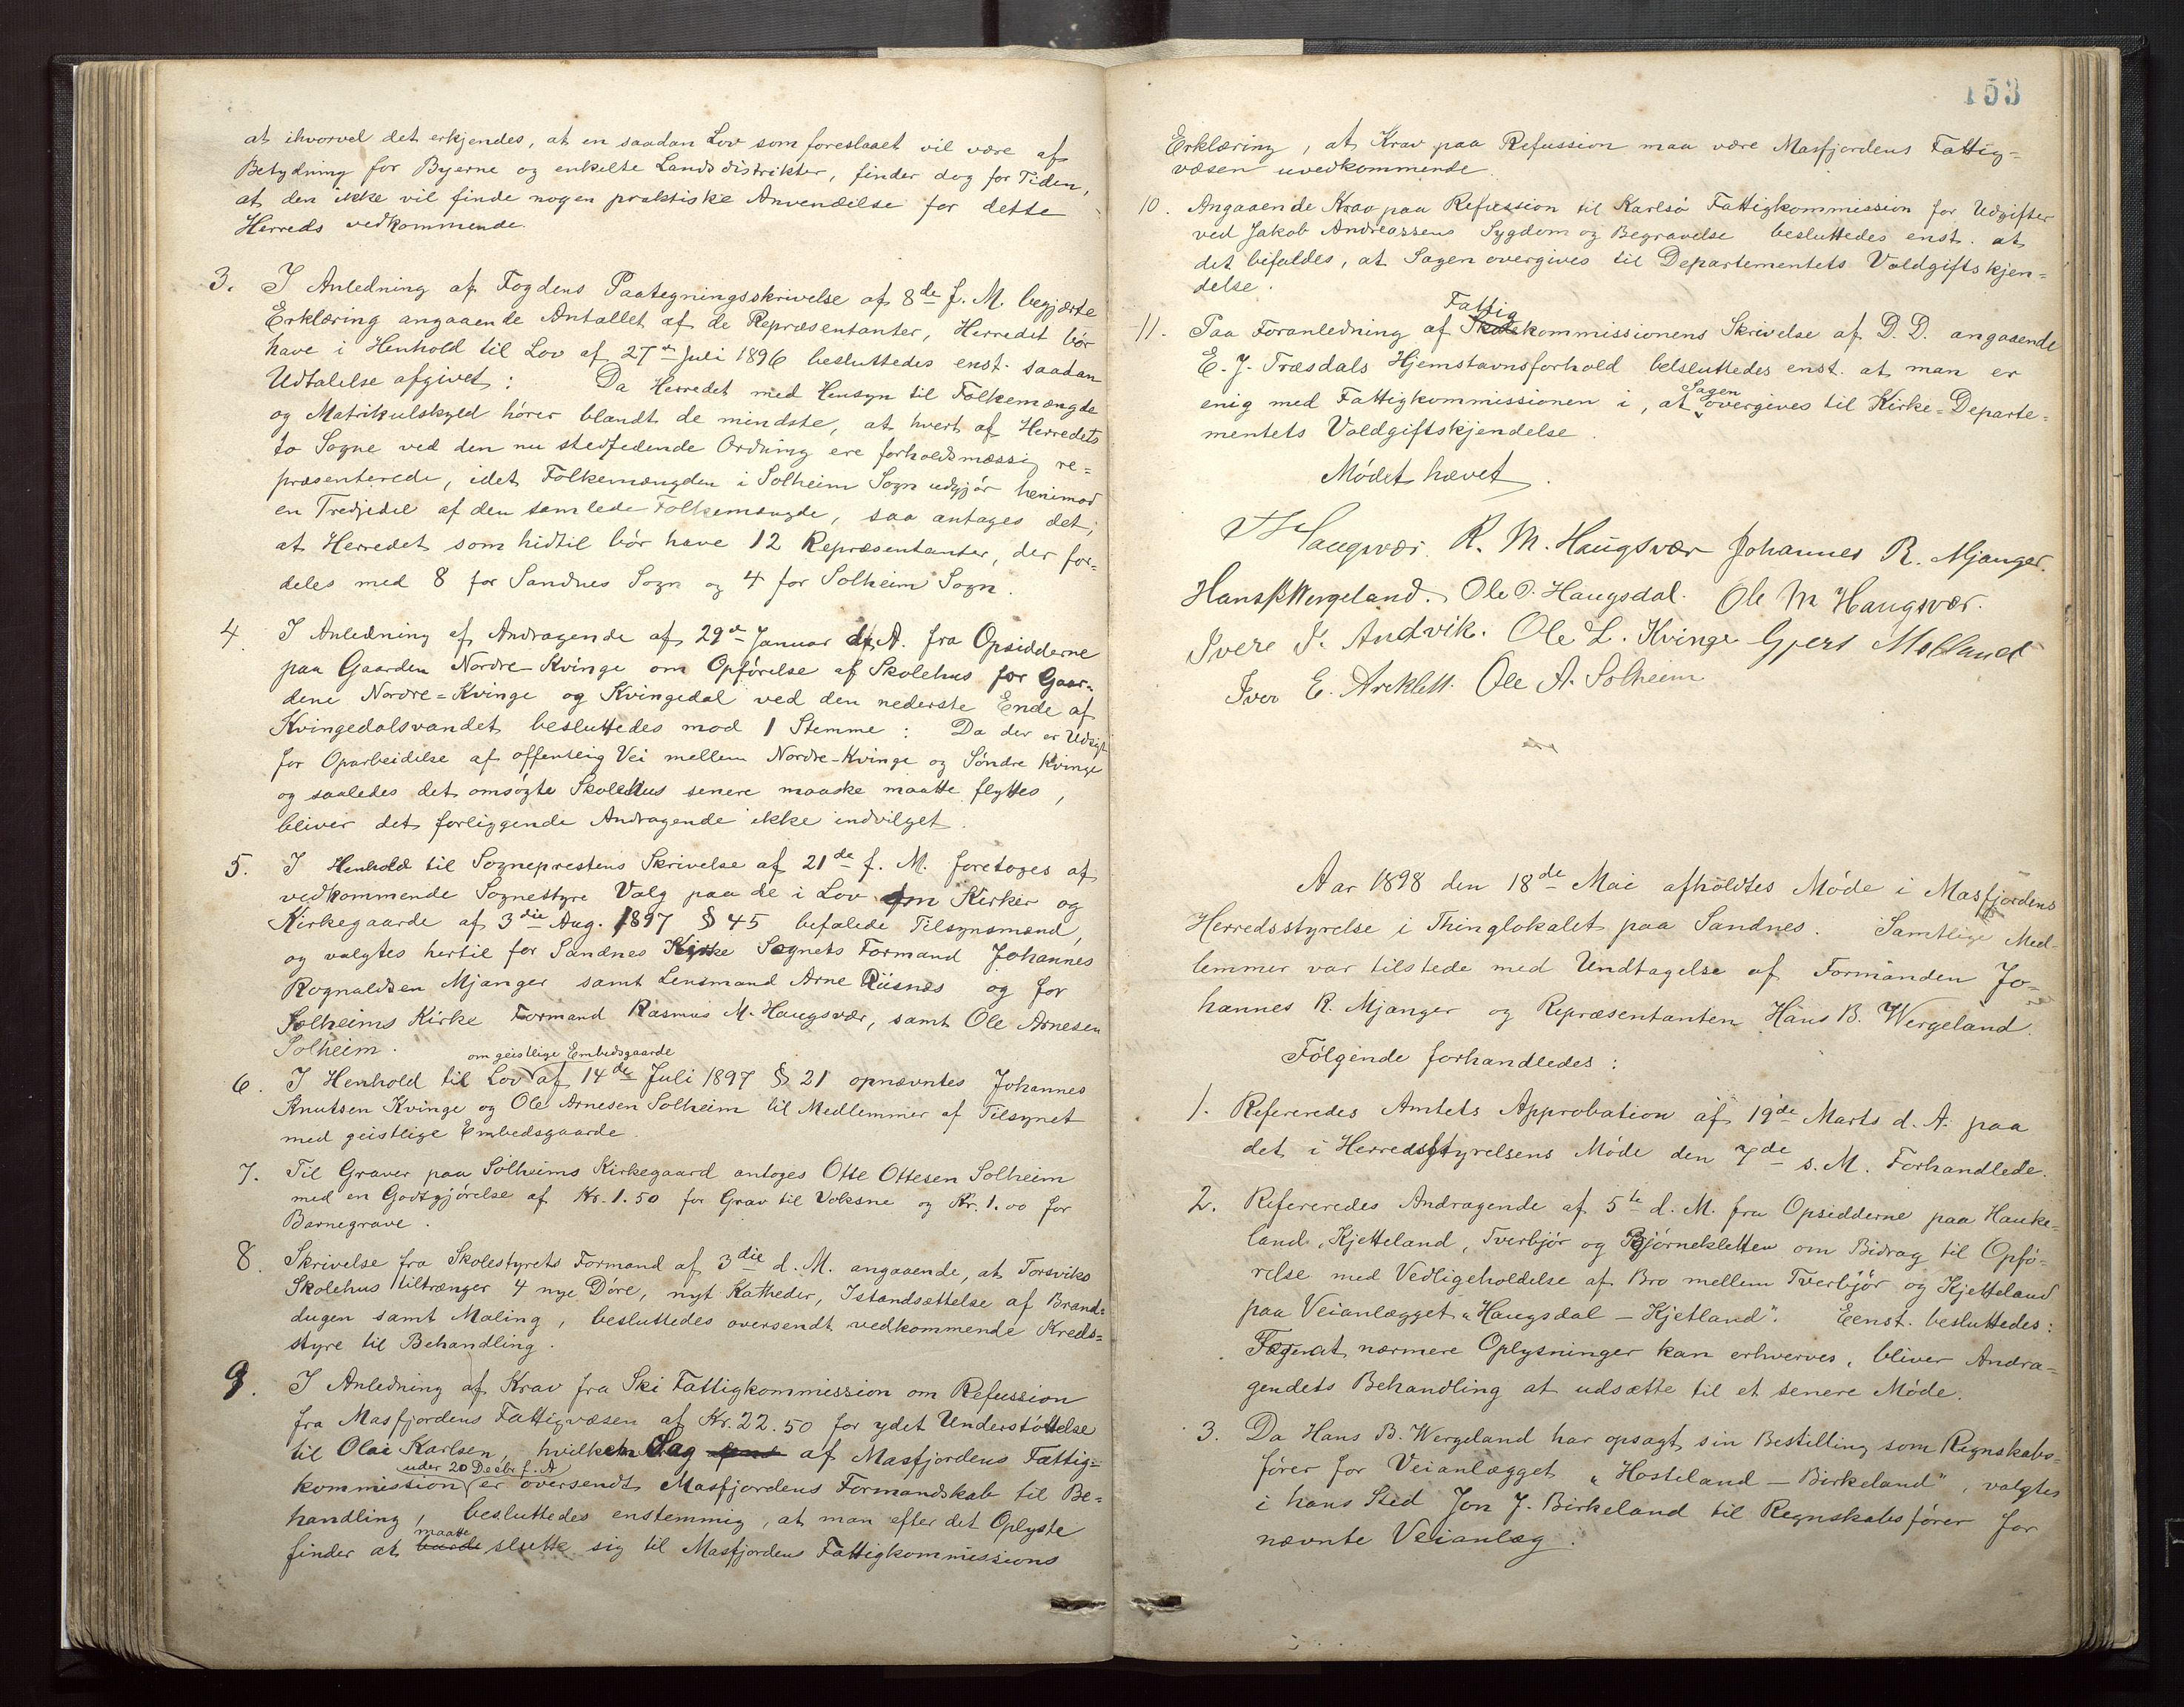 at ihvorvel det erkjendes, at en saadan Lov som foreslaaet vil være af
Betydning for Byerne og enkelte Landsdistrikter, finder dog for Tiden,
at den ikke vil finde nogen praktiske Anvendelse for dette
Herreds vedkommende.
3. I Anledning af Fogdens Paategningsskrivelse af 8de f. M. begjærte
Erklæring angaaende Antallet af de Repræsentanter, Herredet bør
have i Henhold til Lov af 27de Juli 1896 besluttedes enst. saadan
Udtalelse afgivet: Da Herredet med Hensyn til Folkemængde
og Matrikulskyld hører blandt de mindste, at hvert af Herredets
to Sogne ved den nu stedfedende Ordning ere forholdsmæssig re=
præsenterede, idet Folkemængden i Solheim Sogn udgjør henimod
en Tredjedel af den samlede Folkemængde, saa antages det,
at Herredet som hidtil bør have 12 Repræsentanter, der for=
deles med 8 for Sandnes Sogn og 4 for Solheim Sogn.
4. I Anledning af Andragende af 29de Januar d. A. fra Opsidderne
paa Gaarden Nordre Kvinge om Opførelse af Skolehus for Gaar=
dene Nordre=Kvinge og Kvingedal ved den nederste Ende af
Kvingedalsvandet besluttedes mod 1 Stemme: Da der er Udsigt
for Oparbeidelse af offentlig Vei mellem Nordre-Kvinge og Søndre Kvinge
og saaledes det omsøgte Skolehus senere maaske maatte flyttes,
bliver det forliggende Andragende ikke indvilget.
5. I Henhold til Sogneprestens Skrivelse af 21de f. M. foretoges af
vedkommende Sognestyre Valg paa de i Lov om Kirker og
Kirkegaarde af 3die Aug. 1897 § 45 befalede Tilsynsmænd,
og valgtes hertil for Sandnes Kirke Sognets Formand Johannes
Rognaldsen Mjanger samt Lensmand Arne Riisnæs og for
Solheims Kirke Formand Rasmus M. Haugsvær, samt Ole Arnesen
Solheim.
om geistlige Embedsgaarde
6. I Henhold til Lov af 14de Juli 1897 § 21 opnævntes Johannes
Knutsen Kvinge og Ole Arnesen Solheim til Medlemmer af Tilsynet
med geistlige Embedsgaarde.
7. Til Graver paa Solheims Kirkegaard antoges Otte Ottesen Solheim
med en Godtgjørelse af Kr. 1.50 for Grav til Voksne og Kr. 1.00 for
Barnegrave.
8. Skrivelse fra Skolestyrets Formand af 3die d. M. angaaende, at Torsviks
Skolehus tiltrænger 4 nye Døre, nyt Katheder, Istandsættelse af Brand=
dugen samt Maling, besluttedes oversendt vedkommende Kreds=
styre til Behandling.
9. I Anledning af Krav fra Ski Fattigkommission om Refussion
fra Masfjordens Fattigvæsen af Kr. 22.50 for ydet Understøttelse
til Olai Karlsen, hvilken Sag af Masfjordens Fattig=
under 20 Decbr f. A
kommission er oversendt Masfjordens Formandskab til Be=
handling, besluttedes enstemmig, at man efter det Oplyste
maatte
finder at burde slutte sig til Masfjordens Fattigkommissions
153
Erklæring, at Krav paa Refussion maa være Masfjordens Fattig=
væsen uvedkommende.
10. Angaaende Krav paa Refussion til Karlsø Fattigkommission for Udgifter
ved Jakob Andreassens Sygdom og Begravelse besluttedes enst. at
det bifaldes, at Sagen overgives til Departementets Voldgiftskjen=
delse.
Fattig
11. Paa Foranledning af Skolekommissionens Skrivelse af D. D. angaaende
E. J. Træsdals Hjemstavnsforhold belsluttedes enst. at man er
Sagen
enig med Fattigkommissionen i, at overgives til Kirke=Departe=
mentets Voldgiftskjendelse.
Mødet hævet.
Haugsvær R. M. Haugsvær Johannes R. Mjanger.
Hans B Wergeland. Ole O. Haugsdal. Ole M Haugsvær.
Ivere I. Andvik. Ole L. Kvinge Gjert Molland
Iver E. Areklett. Ole A. Solheim
Aar 1898 den 18de Mai afholdtes Møde i Masfjordens
Herredsstyrelse i Thinglokalet paa Sandnes. Samtlige Med-
lemmer var tilstede med Undtagelse af Formanden Jo=
hannes R. Mjanger og Repræsentanten Hans B. Wergeland.
Følgende forhandledes:
1. Refereredes Amtets Approbation af 19de Marts d. A. paa
det i Herredsstyrelsens Møde den 7de s. M. Forhandlede.
2. Refereredes Andragende af 5te d. M. fra Opsidderne paa Hauke=
land, Kjetteland, Tverbjør og Bjørnekletten om Bidrag til Opfø=
relse med Vedligeholdelse af Bro mellem Tverbjør og Kjetteland
paa Veianlægget „Haugsdal – Kjetland". Eenst. besluttedes:
Førend nærmere Oplysninger kan erhverves, bliver Andra=
gendets Behandling at udsætte til et senere Møde.
3. Da Hans B. Wergeland har opsagt sin Bestilling som Regnskabs=
fører for Veianlægget „Hosteland – Birkeland", valgtes
i hans Sted Jon J. Birkeland til Regnskabsfører for
nævnte Veianlæg.